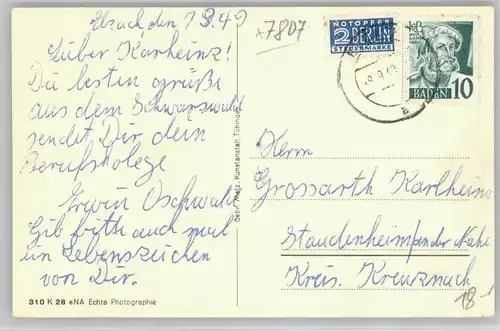 Elzach den 7 9.49
Lieber Karlheinz!
Die besten Grüße
aus dem Schwarzwald
sendet Dir dein
Berufskolege
Erwin Oschwald
Gib bitte auch mal
ein Lebenszeichen
von Dir.
310 K 28 eNA Echte Photographie
Gebr. Metz, Kunstanstalt, Tübingen
x7807
NOTOPFER
2 BERLIN
STEUERMARKE
BADEN 10
Herrn
Grossarth Karlheinz
Staudenheim/an der Nahe
Kreis. Kreuznach
18-